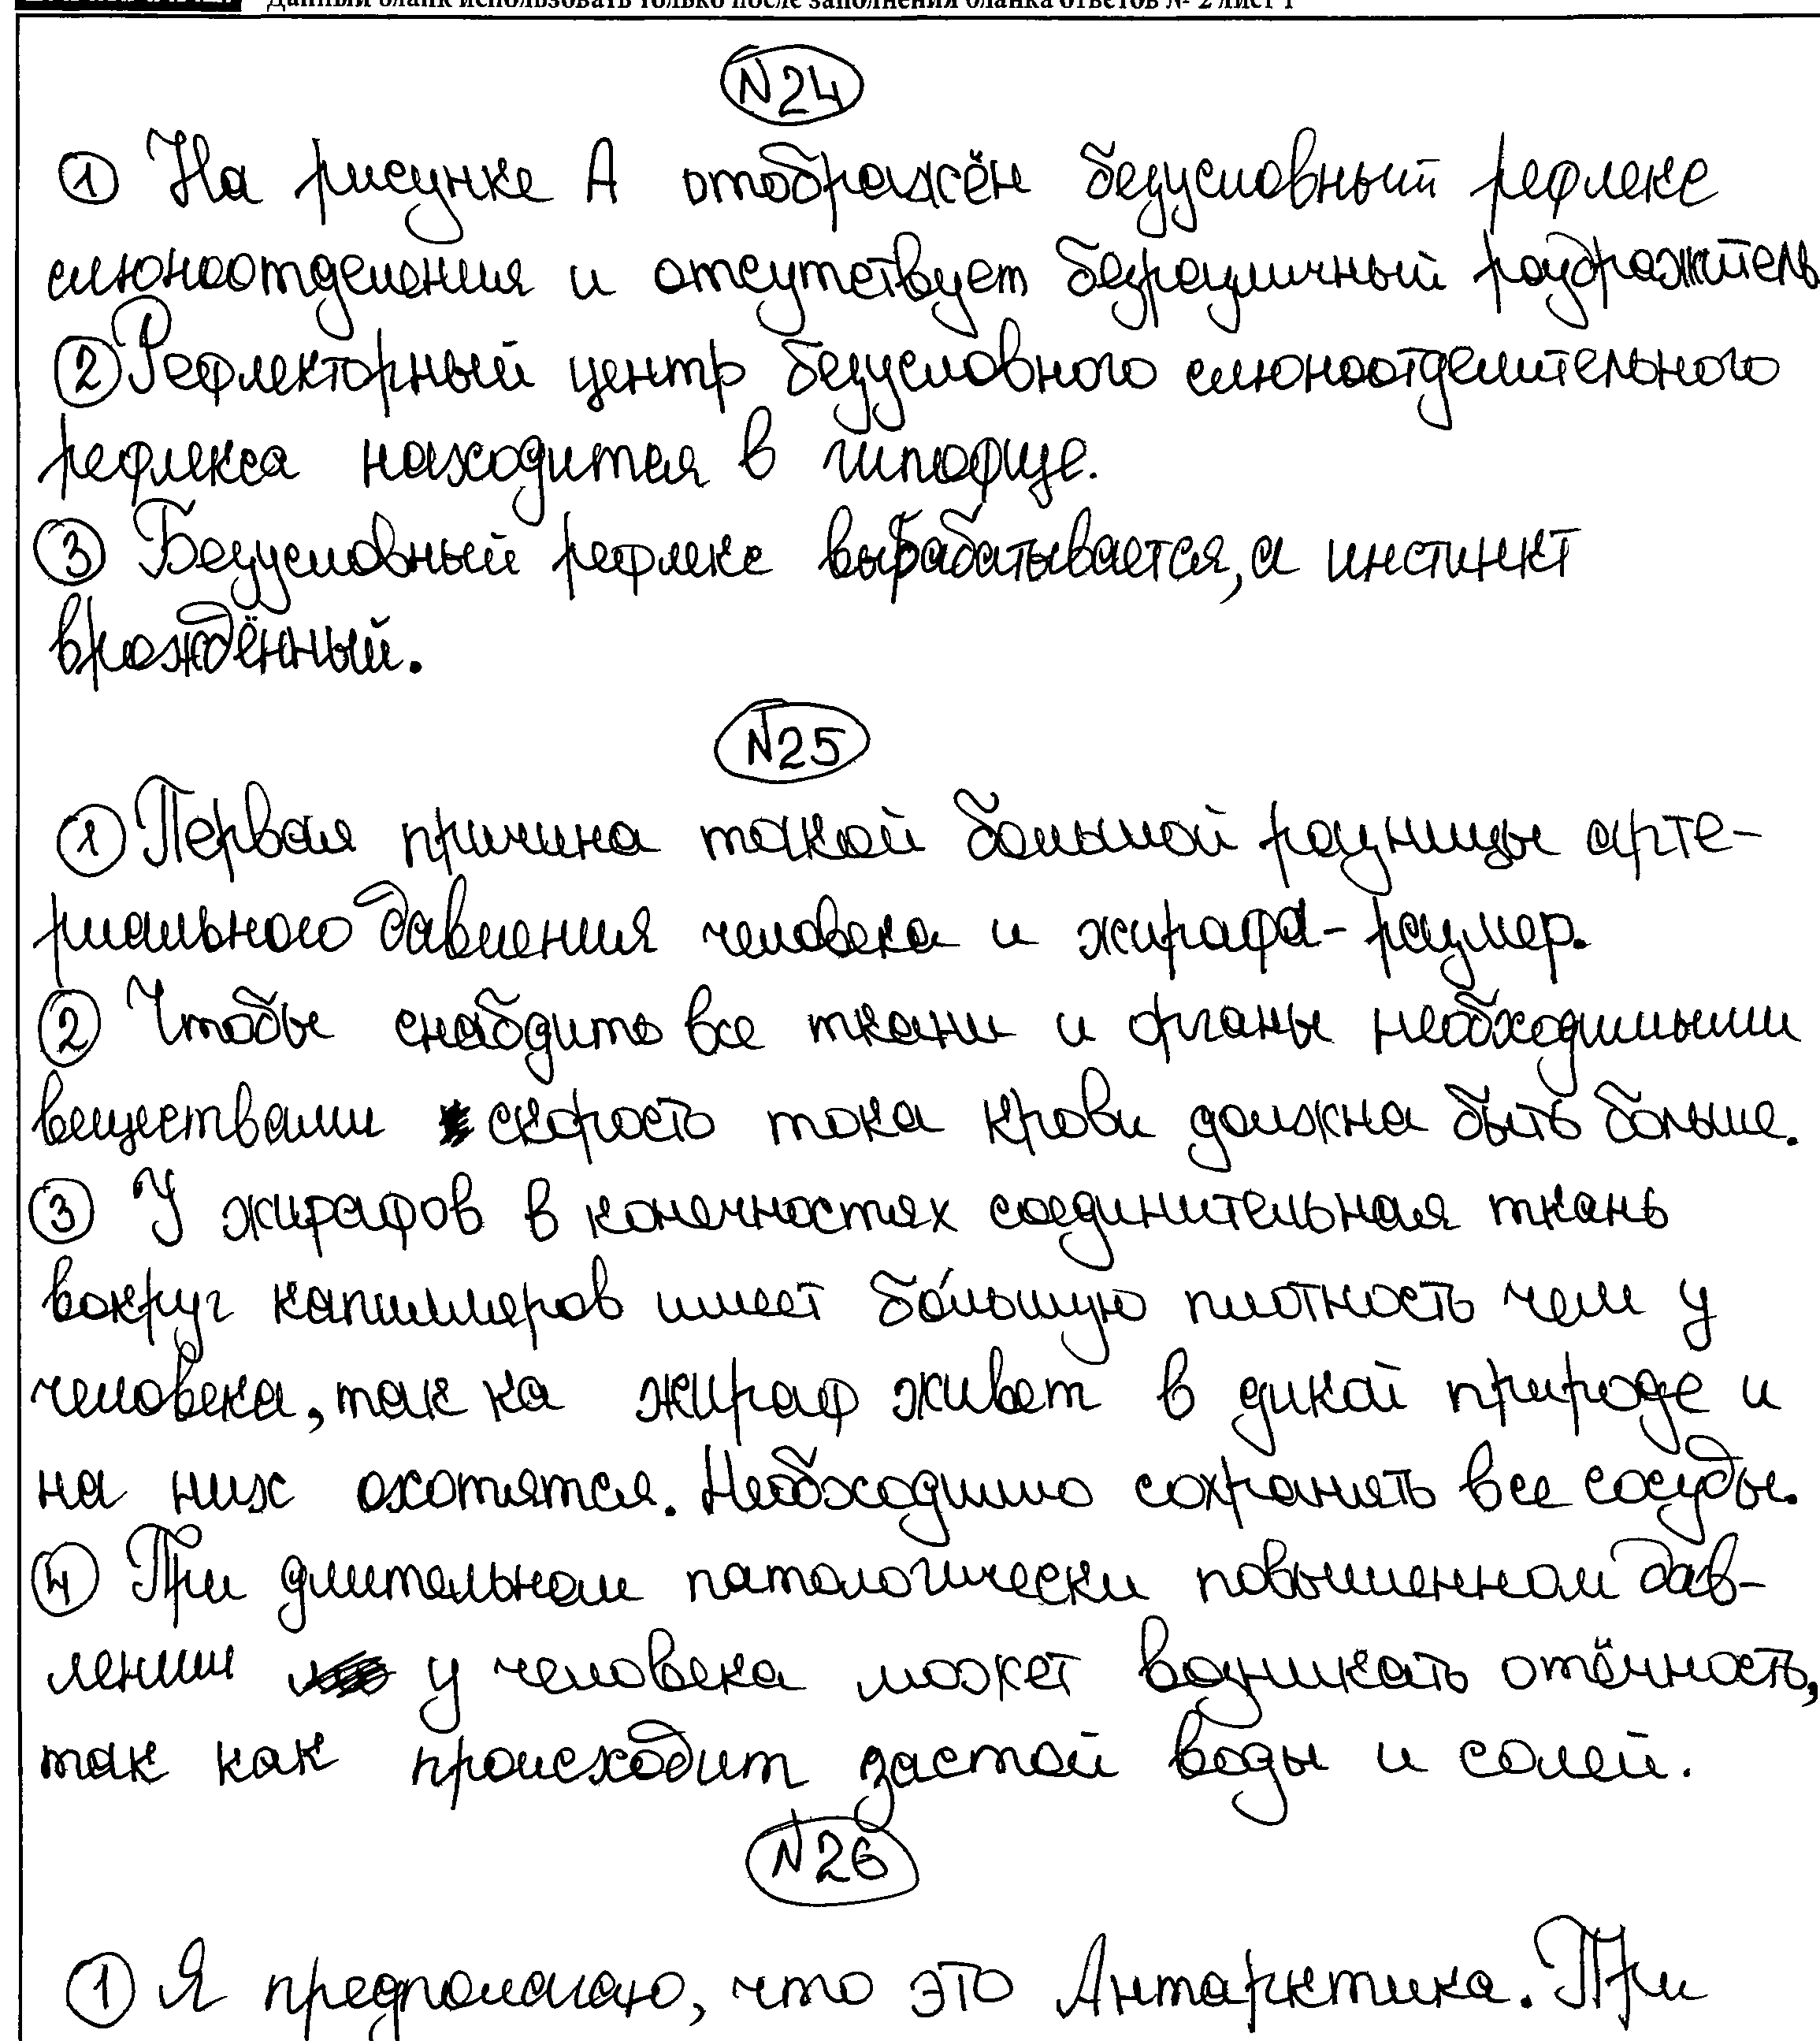 Данный бланк использовать только после заполнения бланка ответов № 2 лист 1
N24
① На рисунке А отображён безусловный рефлекс
слюноотделения и отсутствует безразличный раздражитель
② Рефлекторный центр безусловного слюноотделительного
рефлекса находится в гипофизе.
③ Безусловный рефлекс вырабатывается, а инстинкт
врождённый.
N25
① Первая причина такой большой разницы арте-
риального давления человека и жирафа - размер.
② Чтобы снабдить все ткани и органы необходимыми
веществами скорость тока крови должна быть больше.
③ У жирафов в конечностях соединительная ткань
вокруг капилляров имеет бо́льшую плотность чем у
человека, так ка жираф живет в дикой природе и
на них охотятся. Необходимо сохранять все сосуды.
④ При длительном патологически повышенном дав-
лении у человека может возникать отёчность,
так как происходит застой воды и солей.
N26
① Я предполагаю, что это Антарктика. При